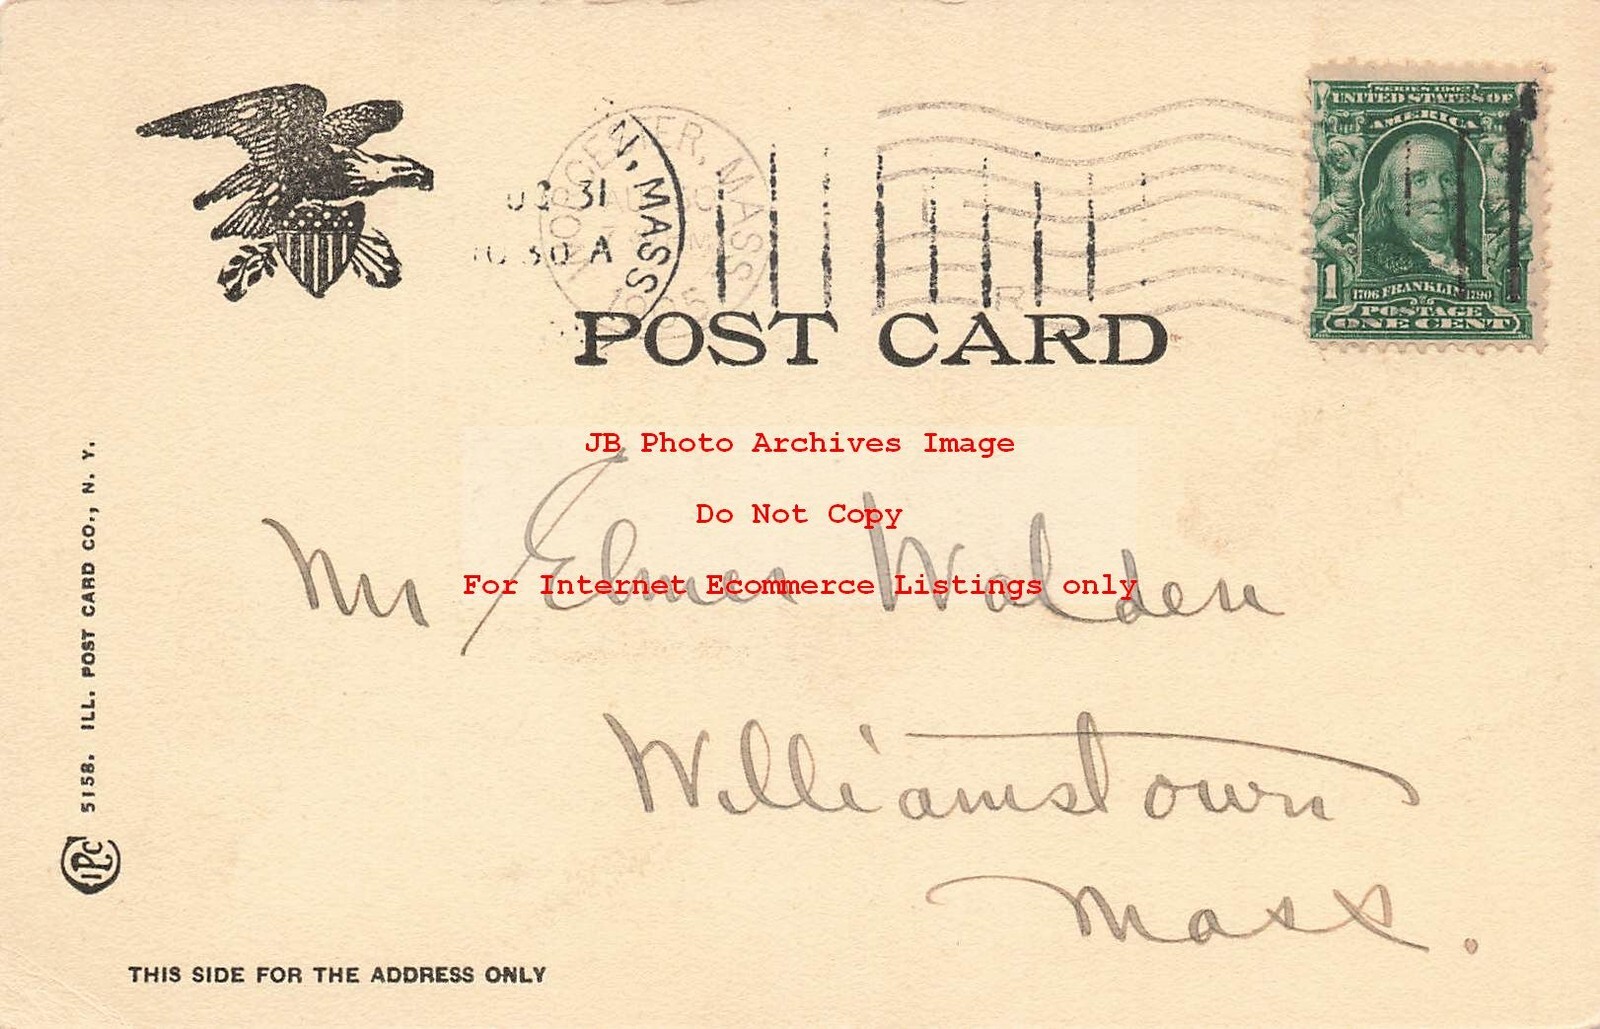 WORCENTER, MASS
AUG 30
1905
UG 31
10 30 A
N, MASS
R
SERIES 1902
UNITED STATES OF
AMERICA
1706 FRANKLIN 1790
1 1
POSTAGE
ONE CENT
POST CARD
JB Photo Archives Image
Do Not Copy
For Internet Ecommerce Listings only
Mr Elmer Walden
Williamstown
Mass.
5158. ILL. POST CARD CO., N. Y.
IPC
THIS SIDE FOR THE ADDRESS ONLY